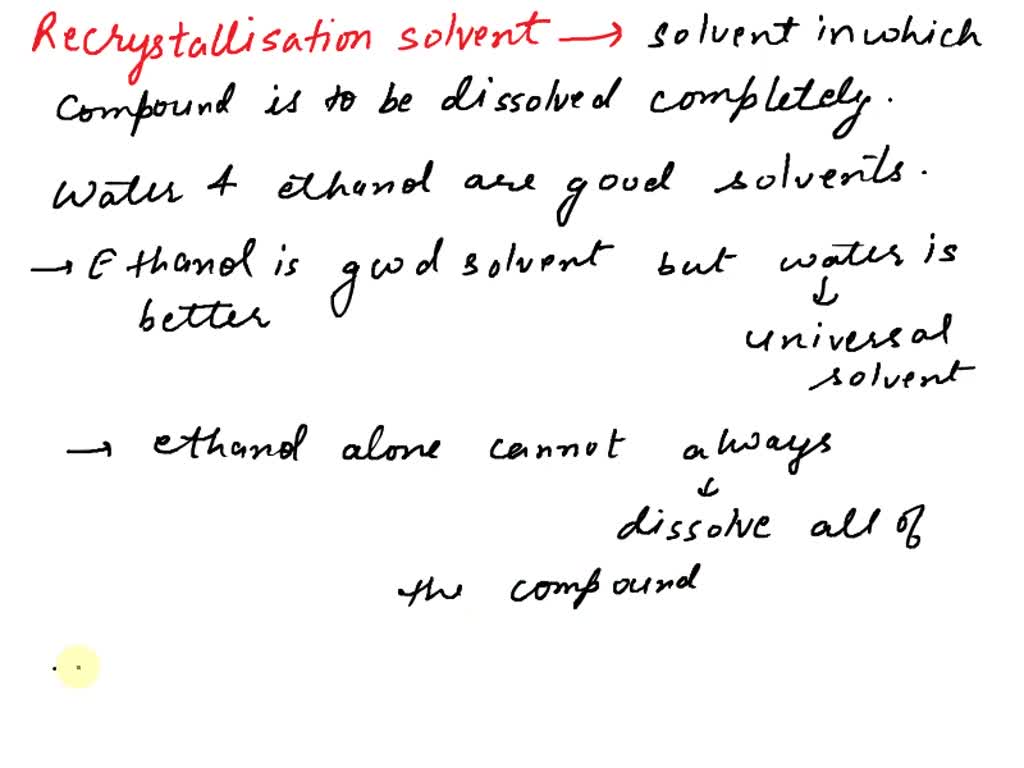 Recrystallisation solvent → solvent in which
compound is to be dissolved completely.
Water & ethanol are good solvents.
→ Ethanol is good solvent but water is
better
↓
universal
solvent
→ ethanol alone cannot always
↓
dissolve all of
the compound